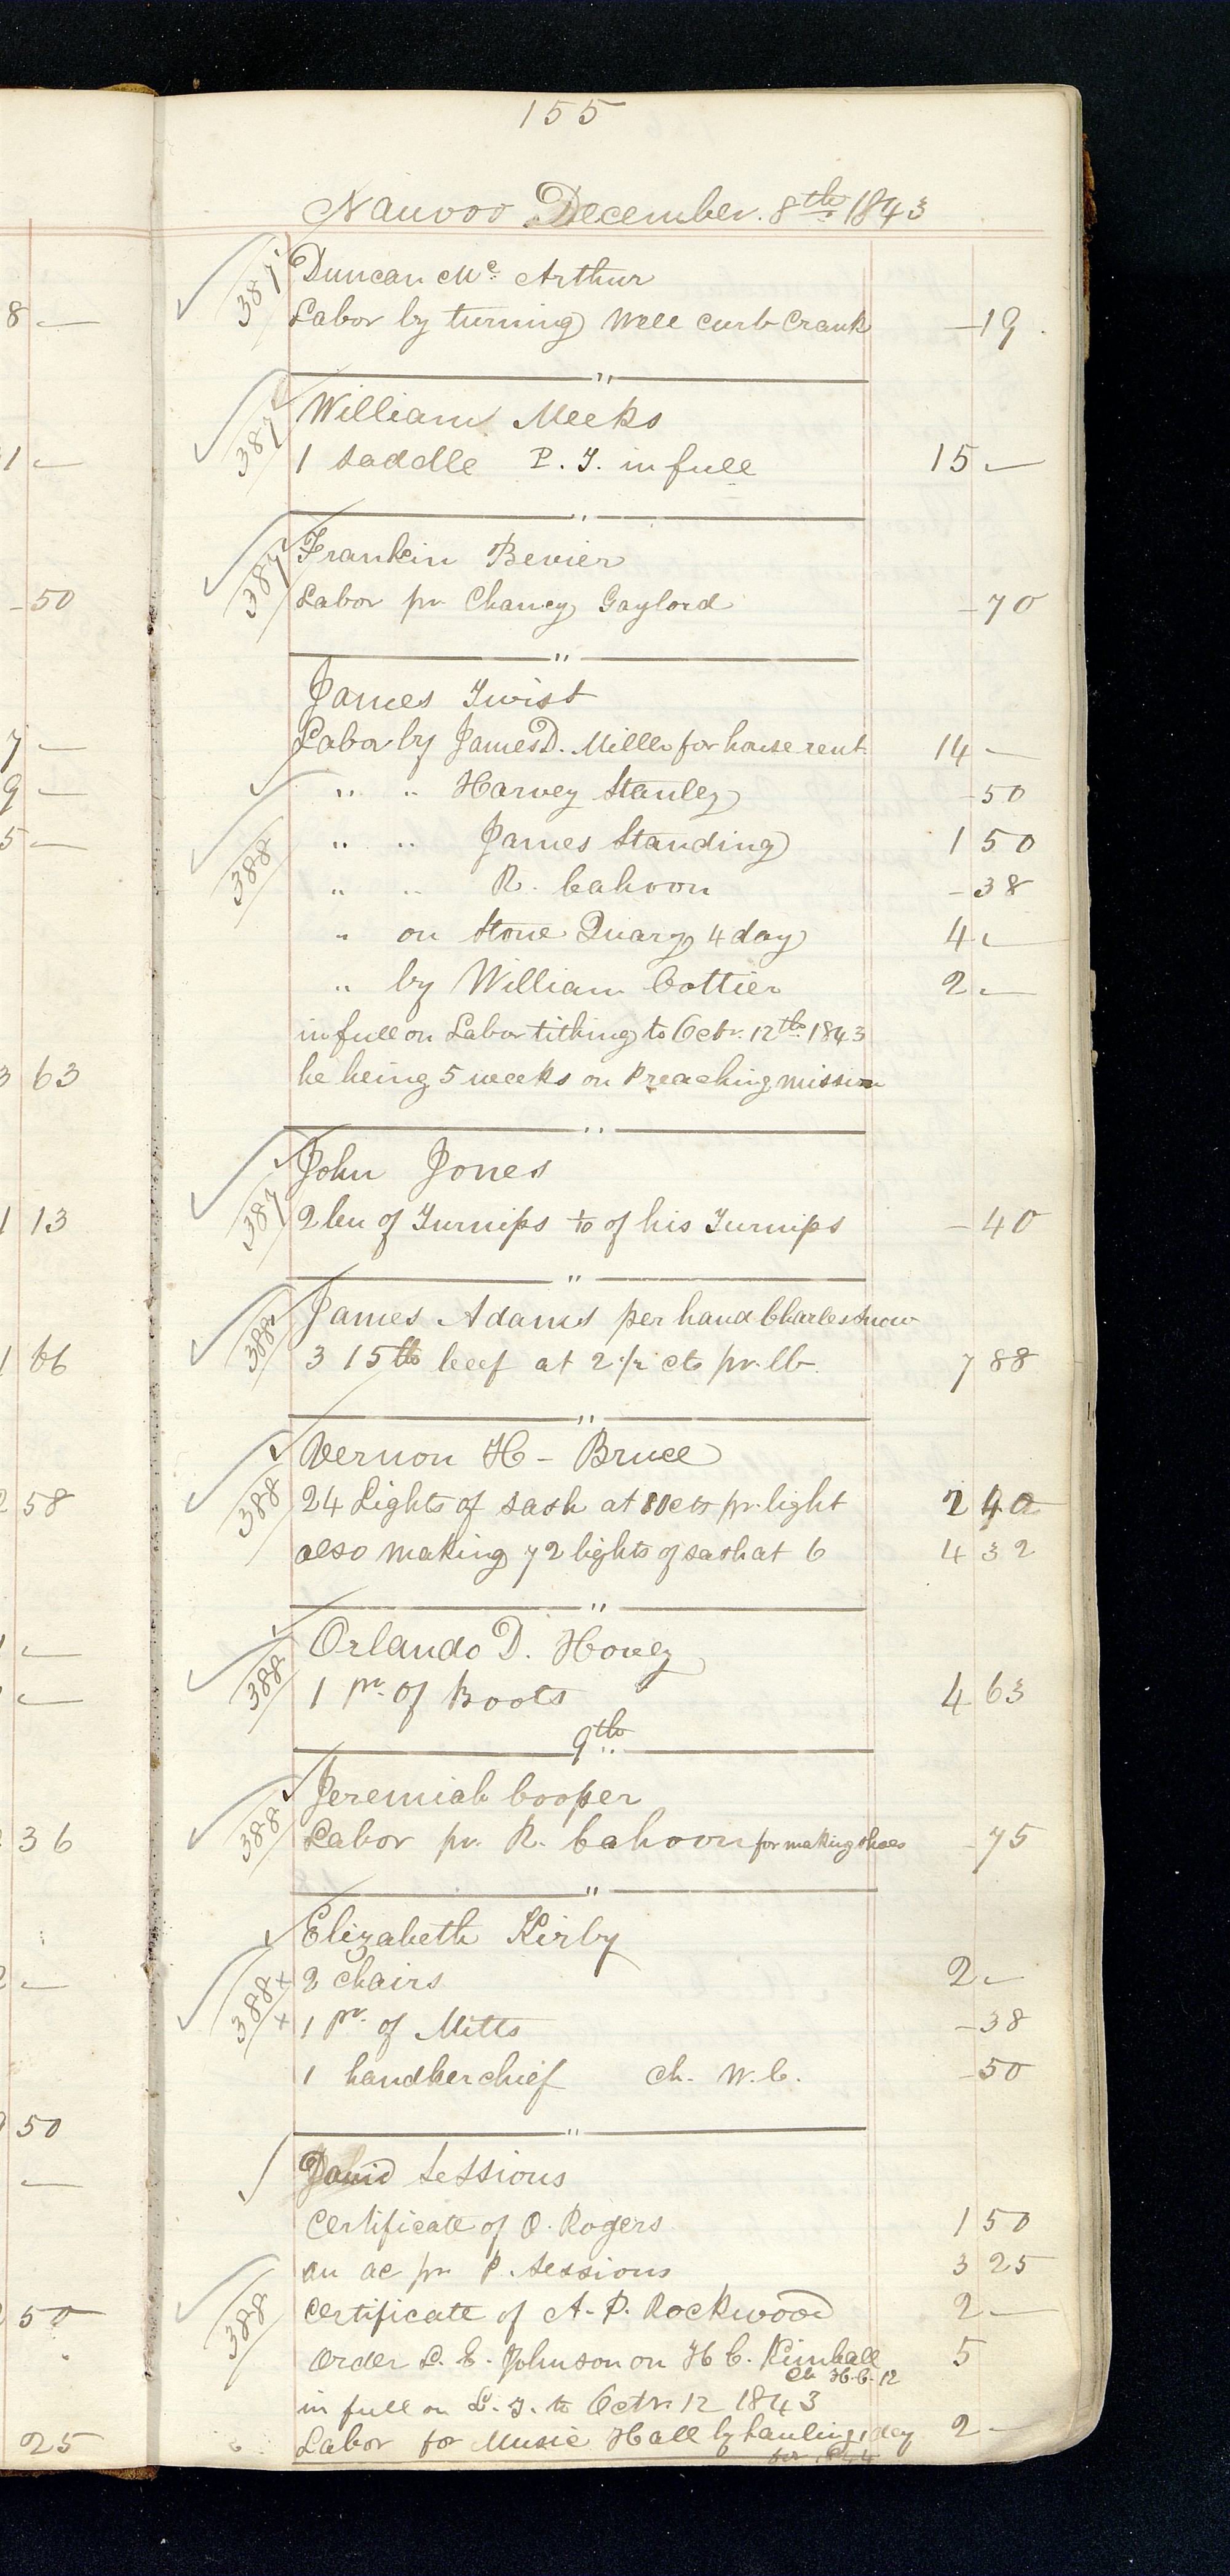 155
Nauvoo December. 8th 1843
387 Duncan Mc Arthur
Labor by turning Well curb Crank —19
"
387 William Meeks
1 saddle P. T. in full 15 —
"
387 Frankin Bevier
Labor pr Chancy Gaylord —70
"
James Twist
Labor by James D. Miller for house rent 14 —
" " Harvey Stanley —50
388 " " James Standing 1 50
" " R. Cahoon —38
" on Stone Quary 4 day 4 —
" by William Cottier 2 —
in full on Labor tithing to Octr. 12th 1843
he being 5 weeks on Preaching mission
"
John Jones
387 2 bu of Turnips 1/10 of his Turnips —40
"
388 James Adams per hand Charles Snow
315 lb beef at 2 1/2 cts pr. lb 7 88
"
Vernon H - Bruce
388 24 Lights of sash at 10 cts pr. light 2 40
also making 72 lights of sash at 6 4 32
"
388 Orlando D. Hovey
1 pr. of Boots 4 63
9th
388 Jeremiah Cooper
Labor pr. R. Cahoon for making shoes —75
"
Elizabeth Kirby
388 + 2 chairs 2 —
+ 1 pr. of Mitts —38
1 handkerchief ch. W. C. —50
"
David Sessions
Certificate of O. Rogers 1 50
an ac pr P. Sessions 3 25
388 Certificate of A. P. Rockwood 2 —
order L. E. Johnson on H C. Kimball 5
ch H. C. 12
in full on L. T. to Octr. 12 1843
Labor for Music Hall by hauling 1 day 2 —
8 —
1 —
—50
7 —
9 —
5 —
3 63
1 13
1 66
2 58
36
2 —
50
—
50
25